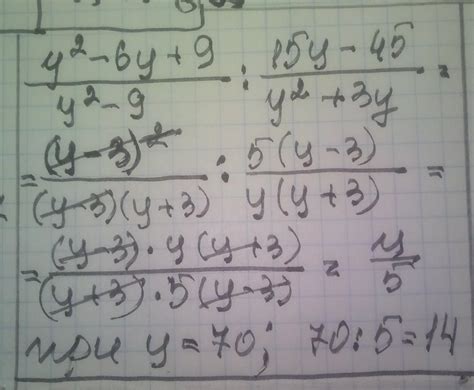 (y² - 6y + 9)/(y² - 9) : (15y - 45)/(y² + 3y) =
= (y-3)²/((y-3)(y+3)) : 5(y-3)/(y(y+3)) =
= ((y-3)·y(y+3))/((y+3)·5(y-3)) = y/5
при y = 70; 70:5=14